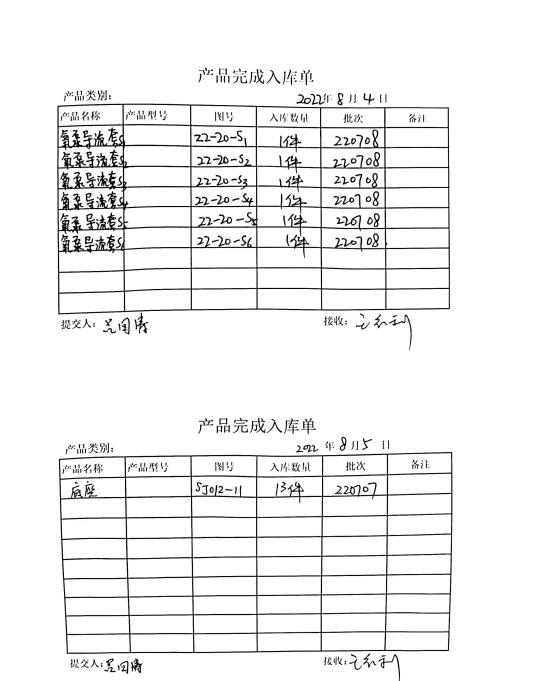 产品完成入库单
产品类别： 2022年 8月 4日
产品名称 产品型号 图号 入库数量 批次 备注
氧泵导流套S1 22-20-S1 1件 220708
氧泵导流套S2 22-20-S2 1件 220708
氧泵导流套S3 22-20-S3 1件 220708
氧泵导流套S4 22-20-S4 1件 220708
氧泵导流套S5 22-20-S5 1件 220708
氧泵导流套S6 22-20-S6 1件 220708
提交人： 接收：
产品完成入库单
产品类别： 2022年 8月5日
产品名称 产品型号 图号 入库数量 批次 备注
底座 SJ012-11 13件 220707
提交人： 接收：